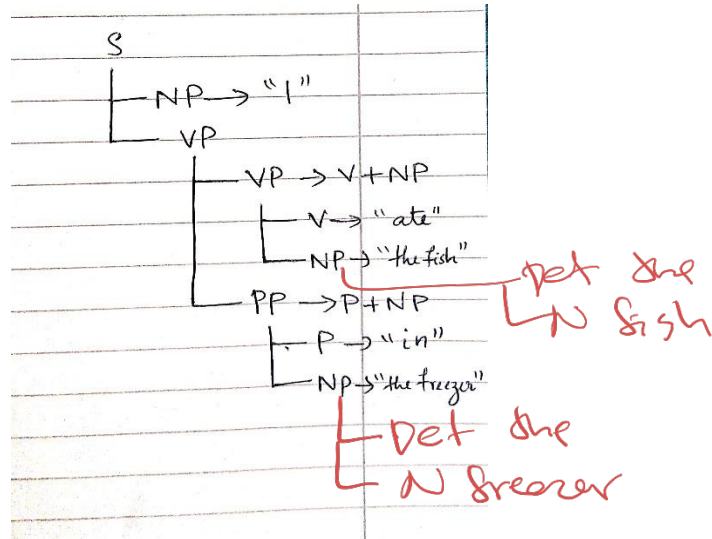 S
NP → "I"
VP
VP → V+NP
V → "ate"
NP → "the fish"
Det the
N fish
PP → P+NP
P → "in"
NP → "the freezer"
Det the
N freezer